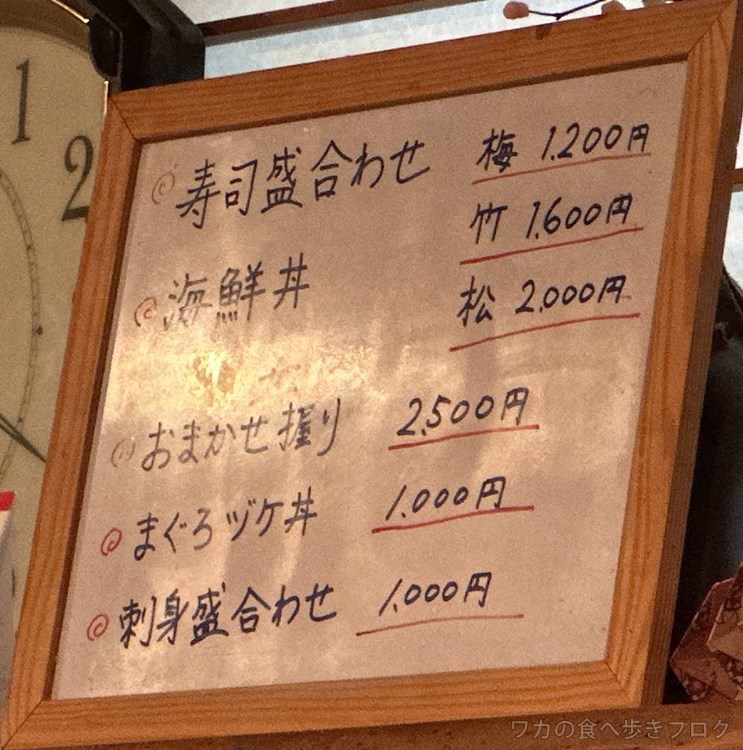 1
2
寿司盛合わせ 梅 1.200円
竹 1.600円
海鮮丼 松 2.000円
おまかせ握り 2.500円
まぐろヅケ丼 1.000円
刺身盛合わせ 1.000円
ワカの食べ歩きブログ